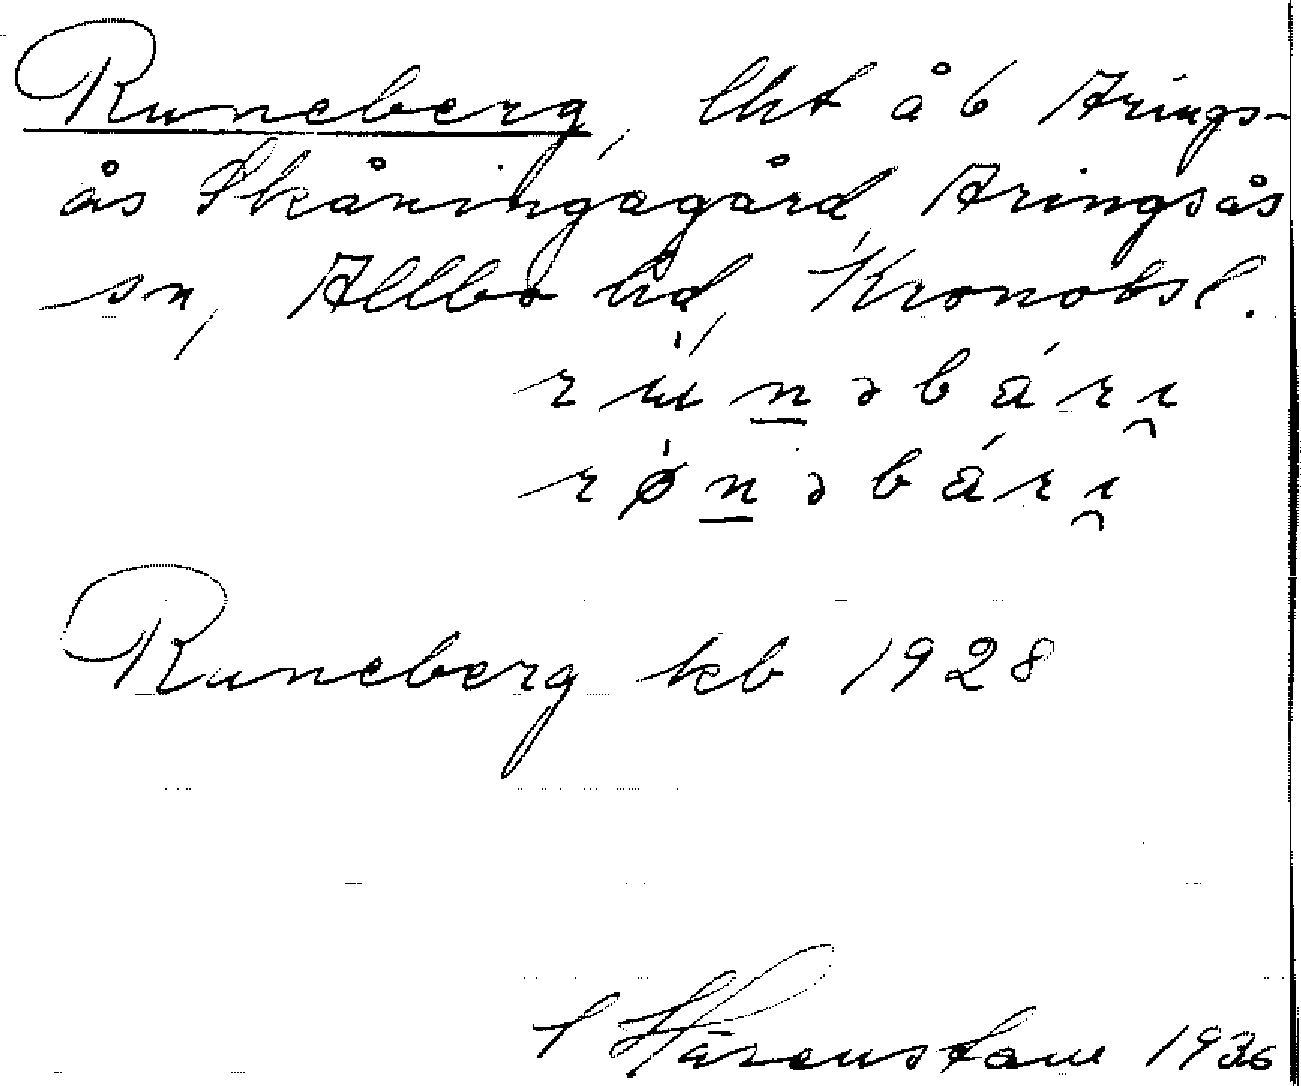 Runeberg, lht å 6 Arings-
ås Skåningagård, Aringsås
sn, Allbo hd, Kronobsl.
rṳ́n̲əbári̯
rǿn̲əbári̯
Runeberg kb 1928
Härenstam 1936